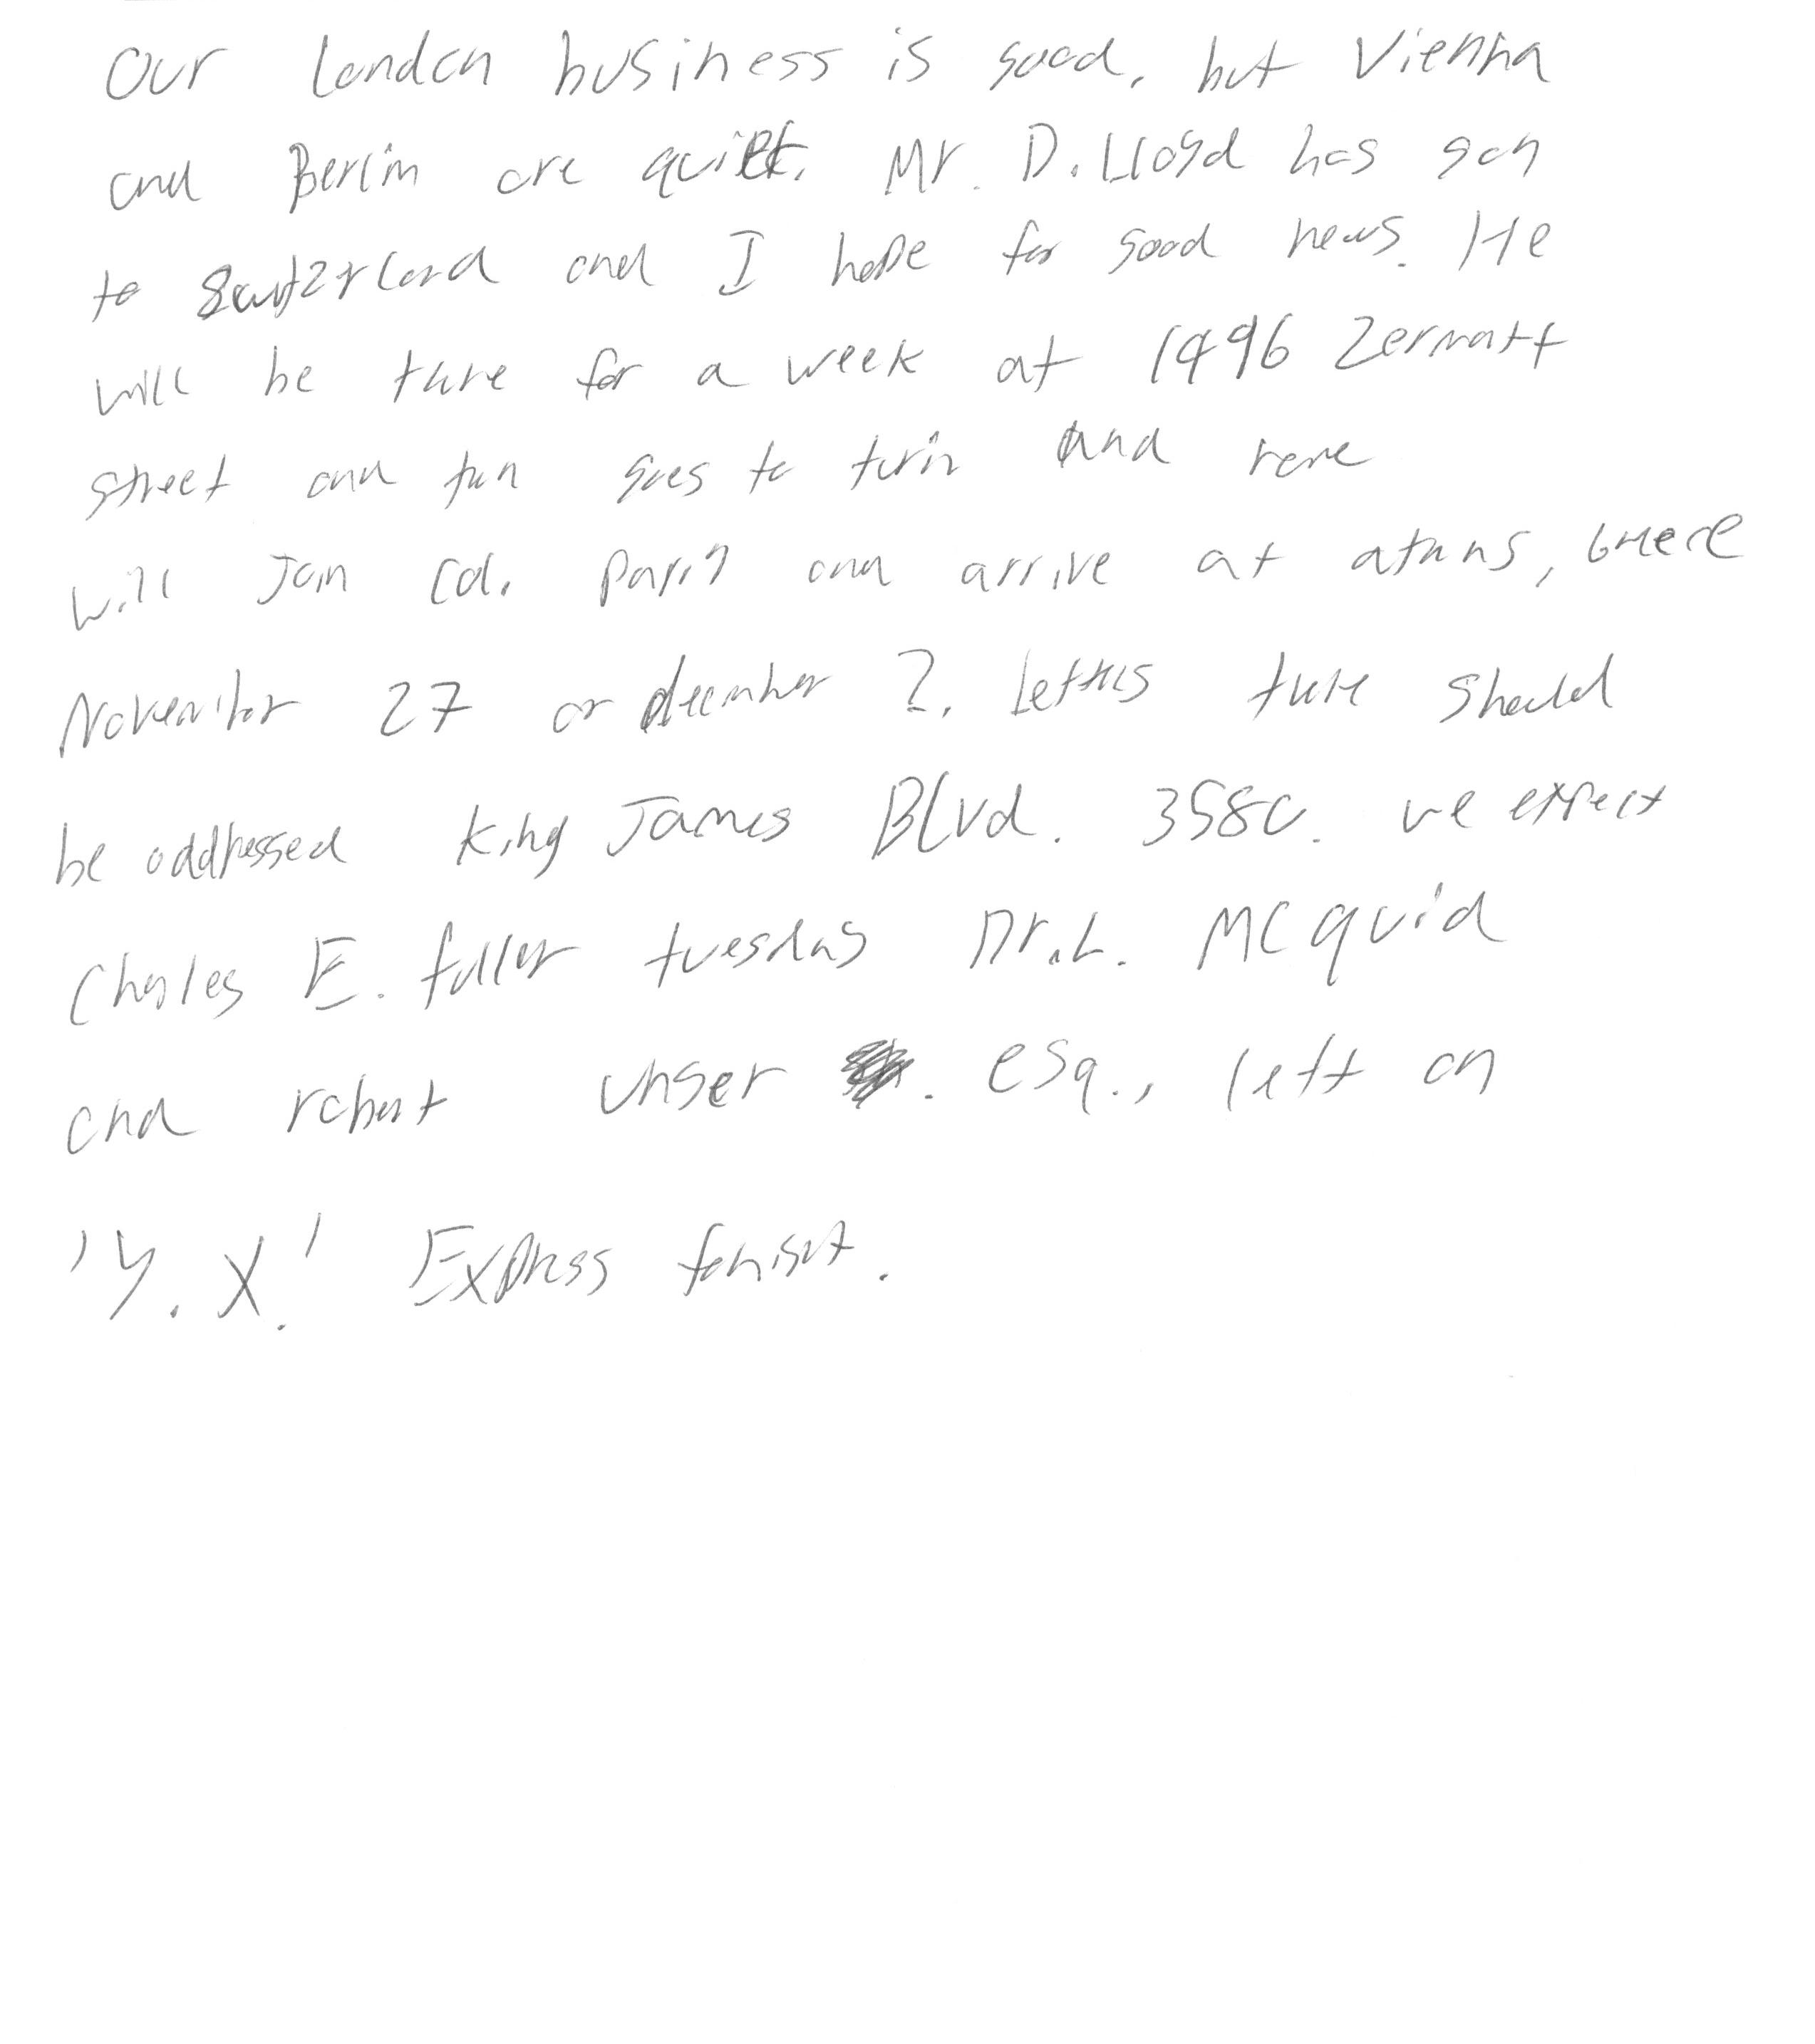 Our London business is good, but Vienna
and Berlin are quiet. Mr. D. Lloyd has gon
to Switzerland and I hope for good news. He
will be there for a week at 1496 Zermatt
street and then goes to turin and rome
will Join Col. Parry and arrive at athens, Greece
November 27 or december 2. Letters there should
be addressed King James Blvd. 3580. we expect
Charles E. fuller tuesday Dr. L. McQuid
and robert unger . esq., left on
'Y. X.' Express tonight.